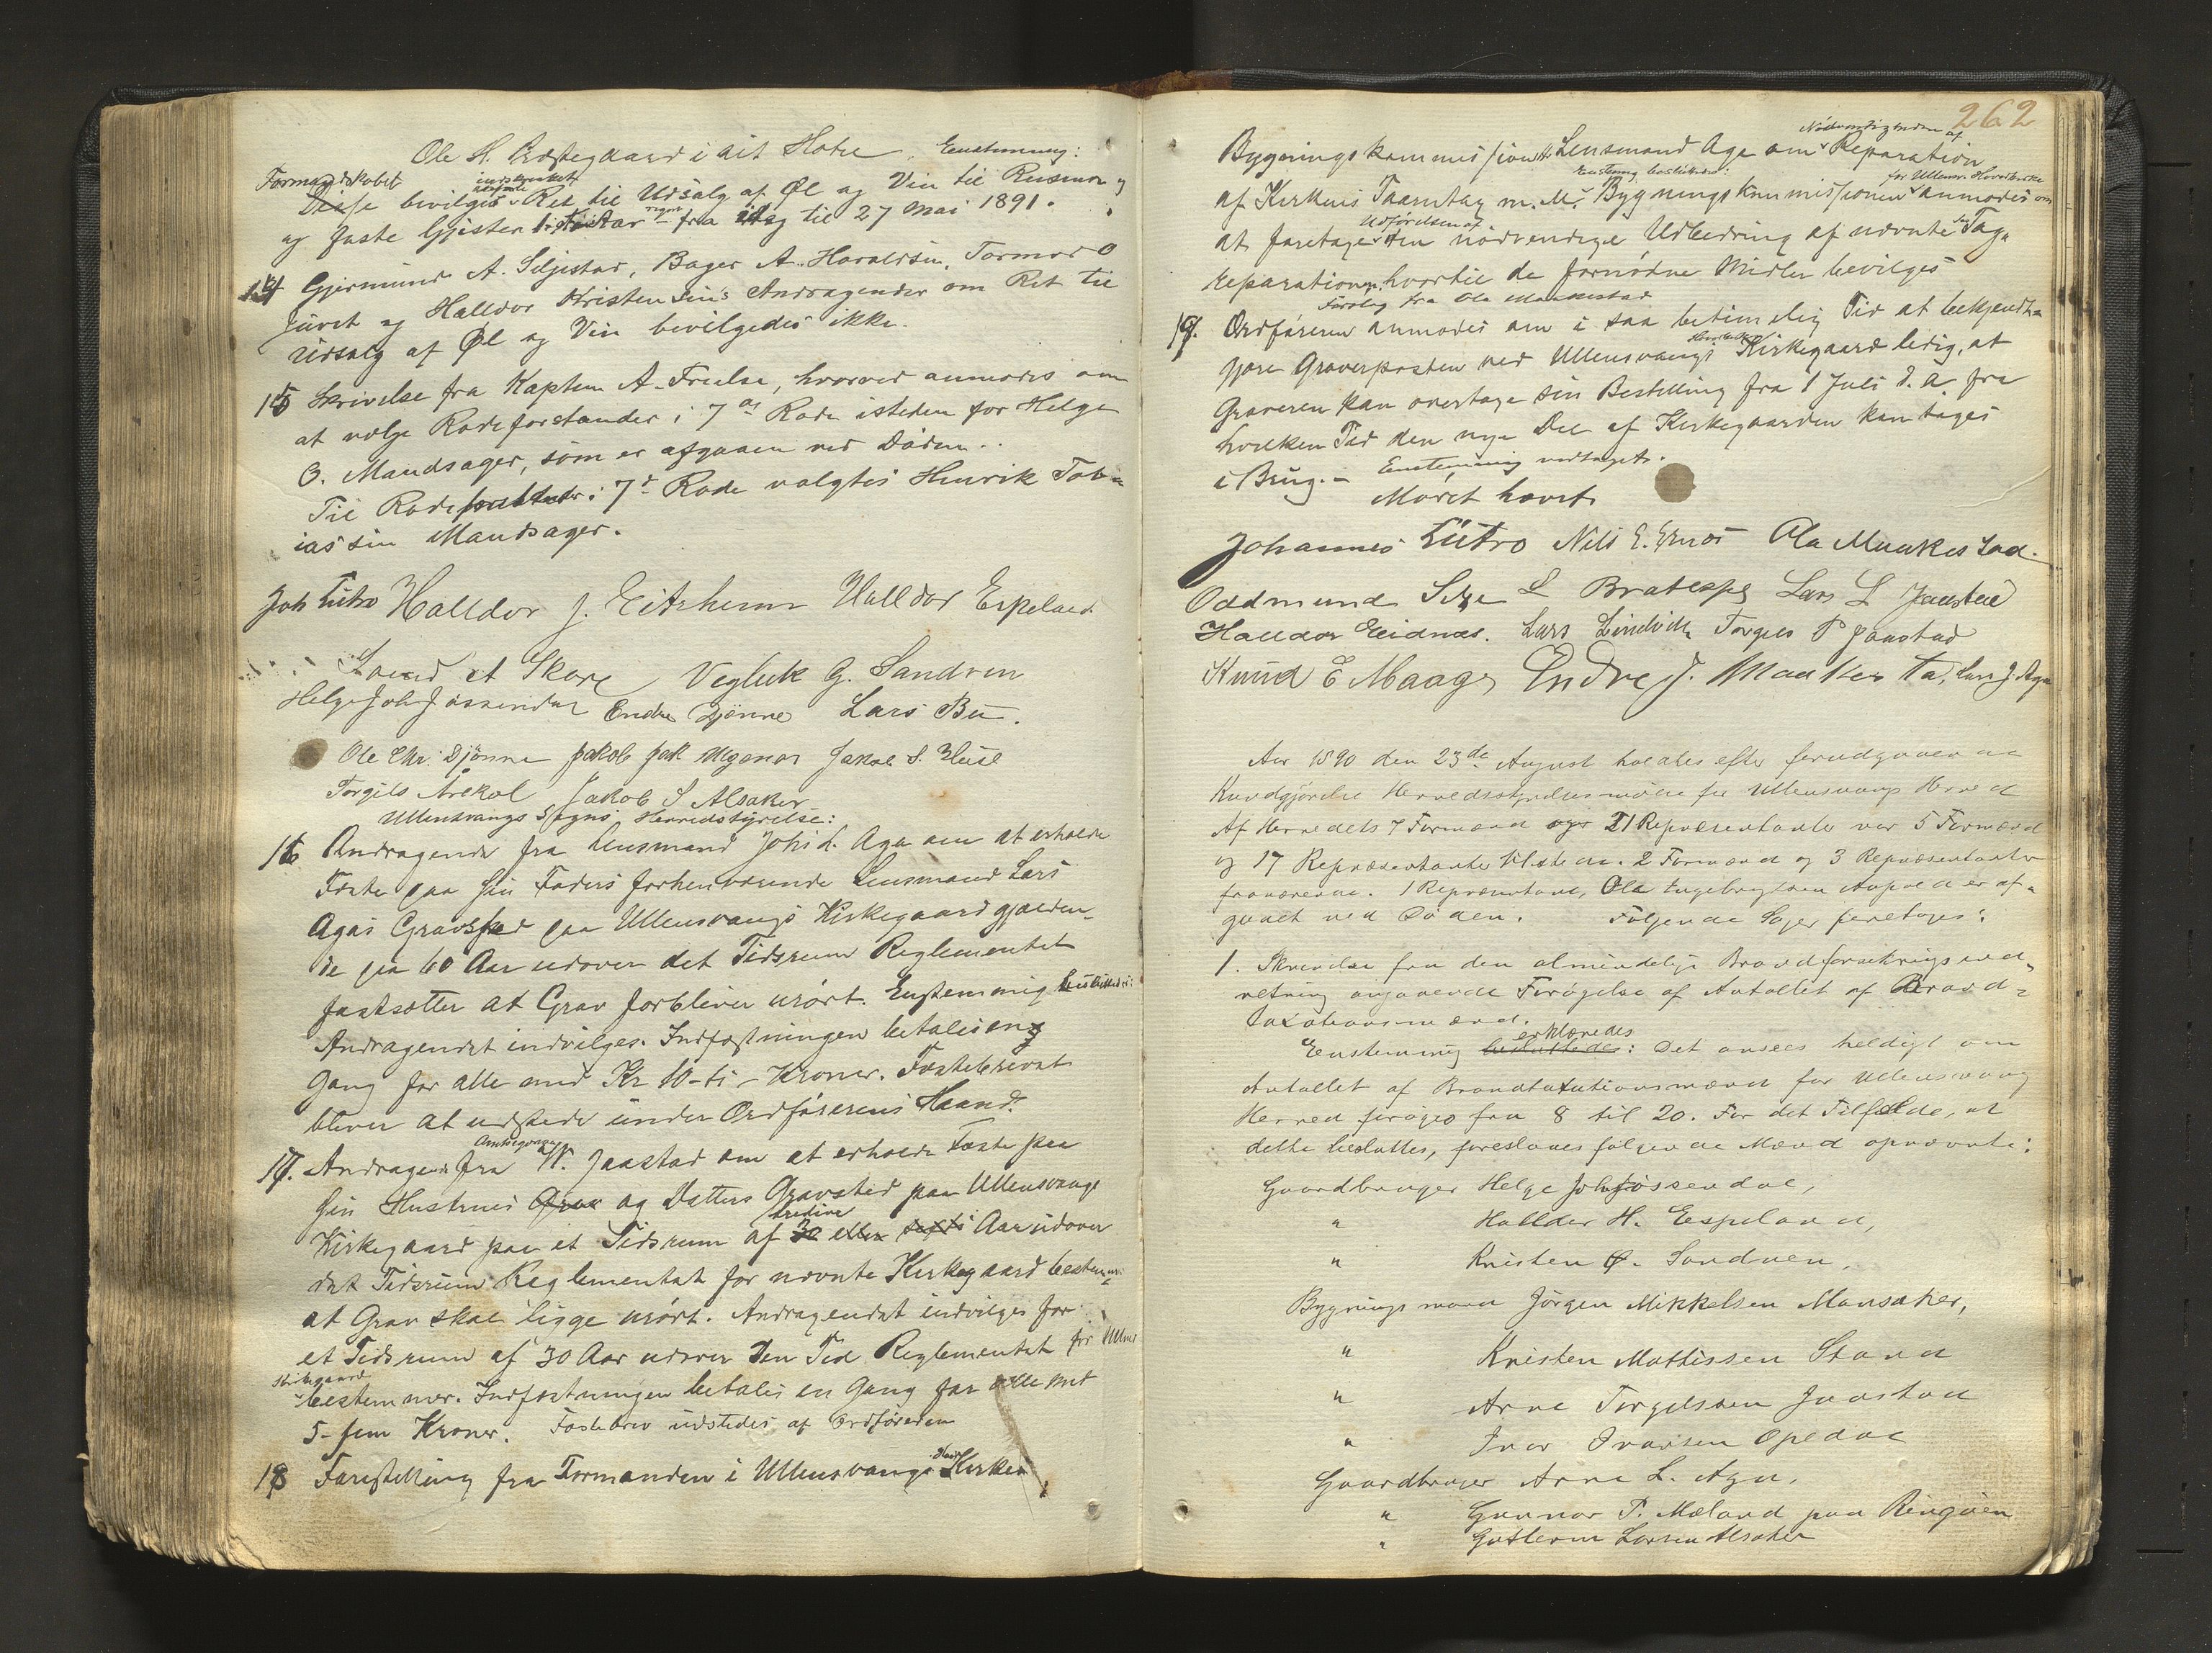 Ole H. Prestegaard i sit Hotel, Enstemmig:
Formandskabet indskrænket
Disse bevilges Ret til Udsalg af Øl og Vin til Reisende og
og faste Gjester 1 et Aar regnet fra idag til 27 Mai 1891.
14 Gjermund A. Seljestad, Bager A. Haraldsen, Tormod O
Jüvet og Halldor Kristensens Andragender om Ret til
Udsalg af Øl og Vin bevilgedes ikke.
15 Skrivelse fra Kaptein A. Frælse, hvorved anmodes om
at vælge Rodeforstander i 7de Rode isteden for Helge
O. Mandsager, som er afgaaen ved Døden.
Til Rodeforstander i 7de Rode valgtes Henrik Tob-
iassen Mandsager.
Joh Lütro Halldor J. Eitrheim Halldor Espeland
Svend A Skare Vegleik G. Sandven
Helge Joh Jøssendal Endre Djønne Lars Bu.
Ole Chr. Djønne Jakob Jak Aga Jakob S. Huse
Torgils Årekol Jakob S Alsaker
Ullensvangs Sogns Herredstyrelse:
16 Andragende fra Lensmand Johs L. Aga om at erholde
Fæste paa sin Faders forhenværende Lensmand Lars
Agas Gravsted paa Ullensvangs Kirkegaard gjælden-
de paa 60 Aar udover det Tidsrum Reglementet
fastsætter at Grav forbliver urørt. Enstemmig besluttedes:
Andragendet indvilges. Indfæstningen betales en
Gang for alle med Kr 10 - ti - Kroner. Fæstebrevet
bliver at udstede under Ordførerens Haand.
17. Andragende fra N. Jaastad om at erholde Fæste paa
sin Hustrues Grav og Datters Gravsted paa Ullensvangs
Kirkegaard paa et Tidsrum af tredive 30 eller sexti Aar udover
det Tidsrum Reglementet for nævnte Kirkegaard bestemmer
at Grav skal ligge urørt. Andragendet indvilges for
et Tidsrum af 30 Aar udover den Tid Reglementet for Ullens
Kirkegaard
bestemmer. Indfæstningen betales en Gang for alle med
5 - fem Kroner. Fæstebrev udstedes af Ordføreren
18 Forestilling fra Formanden i Ullensvangs Hoved Kirkes
262
Bygningskommission Lensmand Aga om Nødvendigheden af Reparation
af Kirkens Taarntag m. M. Enstemmig besluttedes: Bygningskommissionen for Ullensv. Hovedkirke anmodes om
at foretage Udførelsen af den nødvendige Udbedring af nævnte Tag-
reparationer, hvortil de fornødne Midler bevilges
Forslag fra Ola Maakestad
19. Ordføreren anmodes om i saa betimelig Tid at bekjendt-
gjøre Graverposten ved Ullensvangs Hovedkirkes Kirkegaard ledig, at
Graveren kan overtage sin Bestilling fra 1 Juli d. A fra
hvilken Tid den nye Del af Kirkegaarden kan tages
i Brug. - Enstemmig vedtaget.
Mødet hævet.
Johannes Lütro Nils E. Ernes Ola Maakestad.
Oddmund Sexe L Bratespe Lars L Jaastad
Halldor Eidnes. Lars Lindvik Torgils P Jaastad
Knud E Maage Endre J. Maakesta, Lars J. Aga
Aar 1890 den 23de August holdtes efter forudgaaende
Kundgjørelse Herredsstyrelsesmøde for Ullensvang Herred
Af Herredets 7 Formænd og 21 Repræsentanter var 5 Formænd
og 17 Repræsentanter tilstede. 2 Formænd og 3 Repræsentanter
fraværende. 1 Repræsentant, Ola Engebregtsen Aapold er af-
gaaet ved Døden. Følgende Sager foretoges:
1. Skrivelse fra den almindelige Brandforsikringsind-
retning angaaende Forøgelse af Antallet af Brand-
taxationsmænd.
Enstemmig besluttedes erklæredes: Det ansees heldigt om
Antallet af Brandtaxationsmænd for Ullensvang
Herred forøges fra 8 til 20. For det Tilfælde, at
dette besluttes, foreslaaes følgende Mænd opnævnte:
Gaardbruger Helge Joh Jøssendal,
" Halldor H. Espeland,
" Kristen G. Sandven,
Bygningsmand Jørgen Mikkelsen Mansaker,
" Kristen Mattissen Stana
" Arne Torgilssen Jaastad
" Ivar Ivarsen Opedal
Gaardbruger Arne L. Aga,
" Gunnar T. Mæland paa Ringøen
" Guttorm Larsen Alsaker